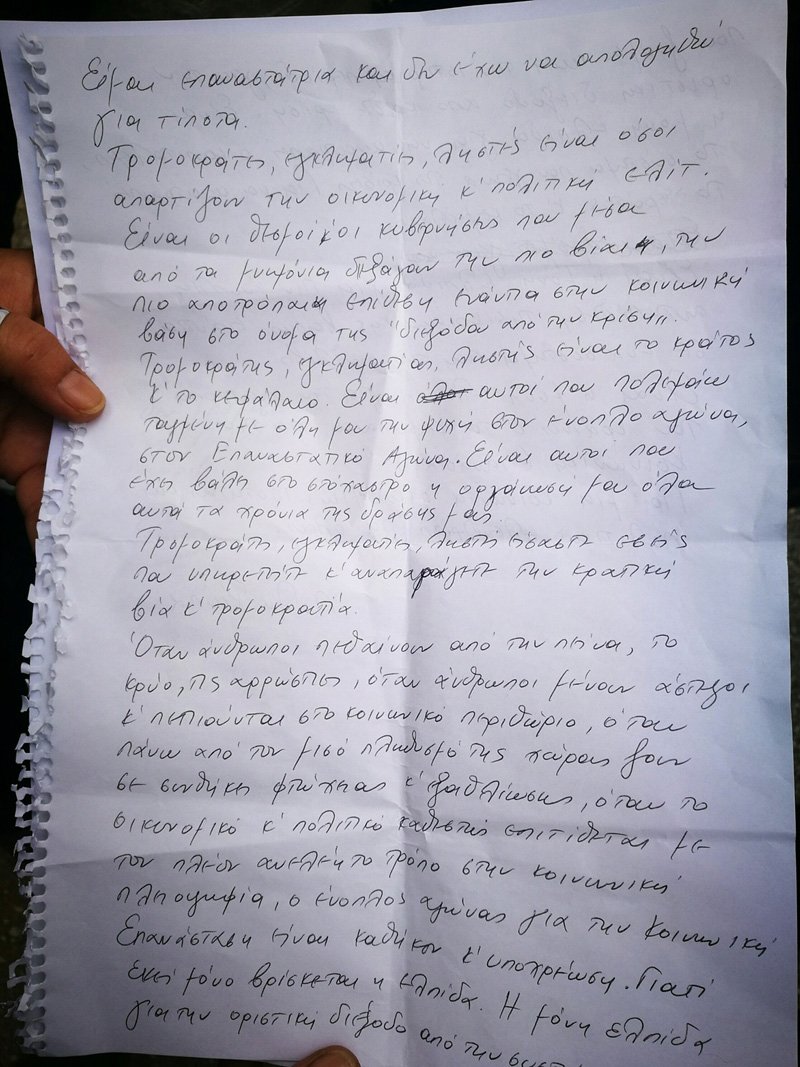 Είμαι επαναστάτρια και δεν έχω να απολογηθώ
για τίποτα.
Τρομοκράτες, εγκληματίες, ληστές είναι όσοι
απαρτίζουν την οικονομική κ' πολιτική ελίτ.
Είναι οι θεσμοί κ' οι κυβερνήσεις που μέσα
από τα μνημόνια διεξάγουν την πιο βίαιη, την
πιο αποτρόπαιη επίθεση ενάντια στην κοινωνική
βάση στο όνομα της "διεξόδου από την κρίση".
Τρομοκράτης, εγκληματίας, ληστής είναι το κράτος
κ' το κεφάλαιο. Είναι αυτοί που πολεμάω
ταγμένη με όλη μου την ψυχή στον ένοπλο αγώνα,
στον Επαναστατικό Αγώνα. Είναι αυτοί που
έχει βάλει στο στόχαστρο η οργάνωσή μου όλα
αυτά τα χρόνια της δράσης μας
Τρομοκράτες, εγκληματίες, ληστές είσαστε εσείς
που υπηρετείτε κ' αναπαράγετε την κρατική
βία κ' τρομοκρατία.
Όταν άνθρωποι πεθαίνουν από την πείνα, το
κρύο, τις αρρώστιες, όταν άνθρωποι μένουν άστεγοι
κ' πετιούνται στο κοινωνικό περιθώριο, όταν
πάνω από τον μισό πληθυσμό της χώρας ζουν
σε συνθήκες φτώχειας κ' εξαθλίωσης, όταν το
οικονομικό κ' πολιτικό καθεστώς επιτίθεται με
τον πλέον ανελέητο τρόπο στην κοινωνική
πλειοψηφία, ο ένοπλος αγώνας για την Κοινωνική
Επανάσταση είναι καθήκον κ' υποχρέωση. Γιατί
εκεί μόνο βρίσκεται η ελπίδα. Η μόνη ελπίδα
για την οριστική διέξοδο από την